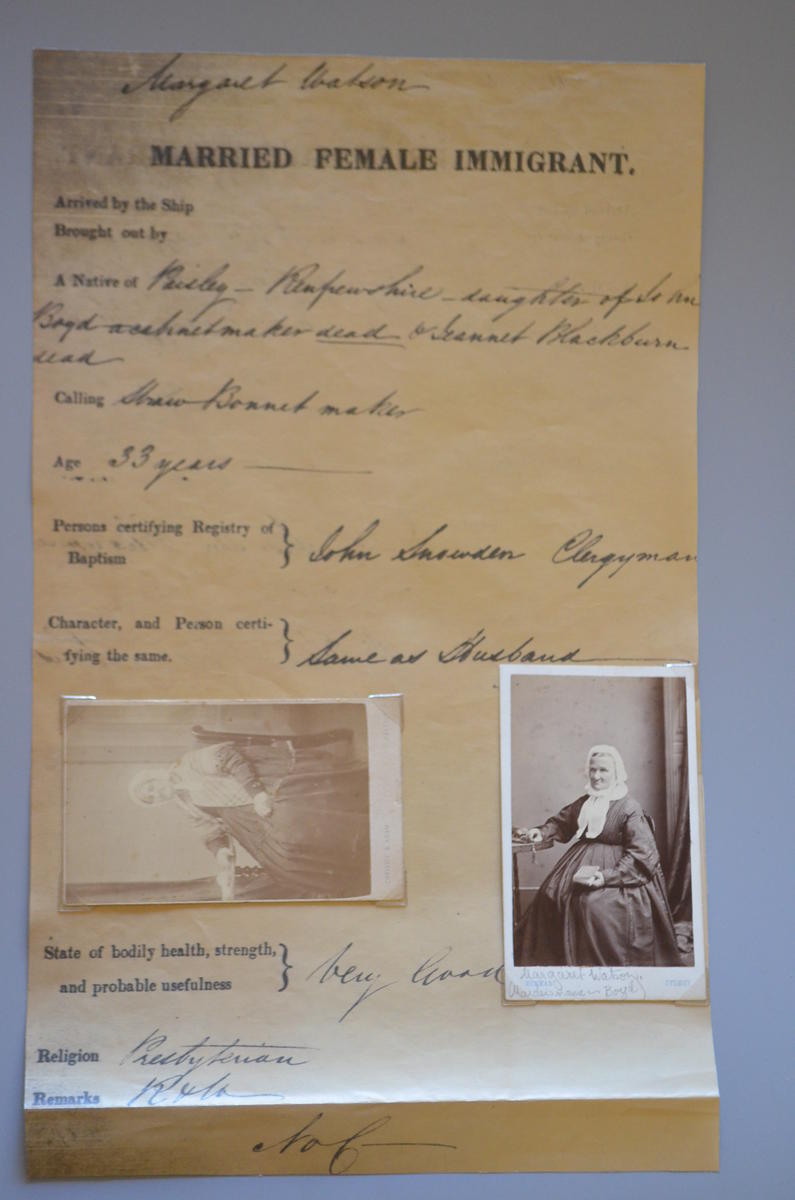 Margaret Watson
MARRIED FEMALE IMMIGRANT.
Arrived by the Ship
Brought out by
A Native of Paisley - Renfrewshire - daughter of John
Boyd a cabinet maker dead & Jeannet Blackburn
dead
Calling Straw Bonnet maker
Age 33 years
Persons certifying Registry of
Baptism } John Snowden Clergyman
Character, and Person certi-
fying the same. } Same as Husband
State of bodily health, strength,
and probable usefulness } Very Good
Margaret Watson.
SYDNEY
Religion Presbyterian
Remarks R & W
No C